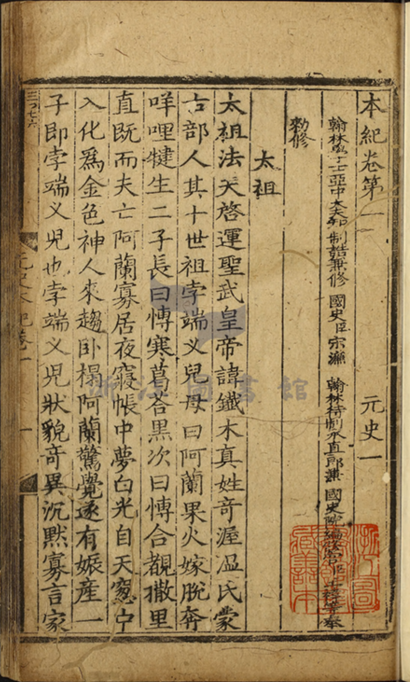 本紀卷第一 元史一
翰林學士亞中大夫知制誥兼修 國史臣宋濂 翰林待制承直郎兼 國史院編修官臣王禕等奉
勑修
太祖
太祖法天啓運聖武皇帝諱鐵木真姓奇渥温氏蒙
古部人其十世祖孛端义兒母曰阿蘭果火嫁脫奔
咩哩犍生二子長曰博寒葛荅黑次曰博合覩撒里
直既而夫亡阿蘭寡居夜寢帳中夢白光自天窻中
入化爲金色神人來趨卧榻阿蘭驚覺遂有娠產一
子即孛端义兒也孛端义兒狀貌奇異沉默寡言家
元史本紀卷一
一
浙江圖書館